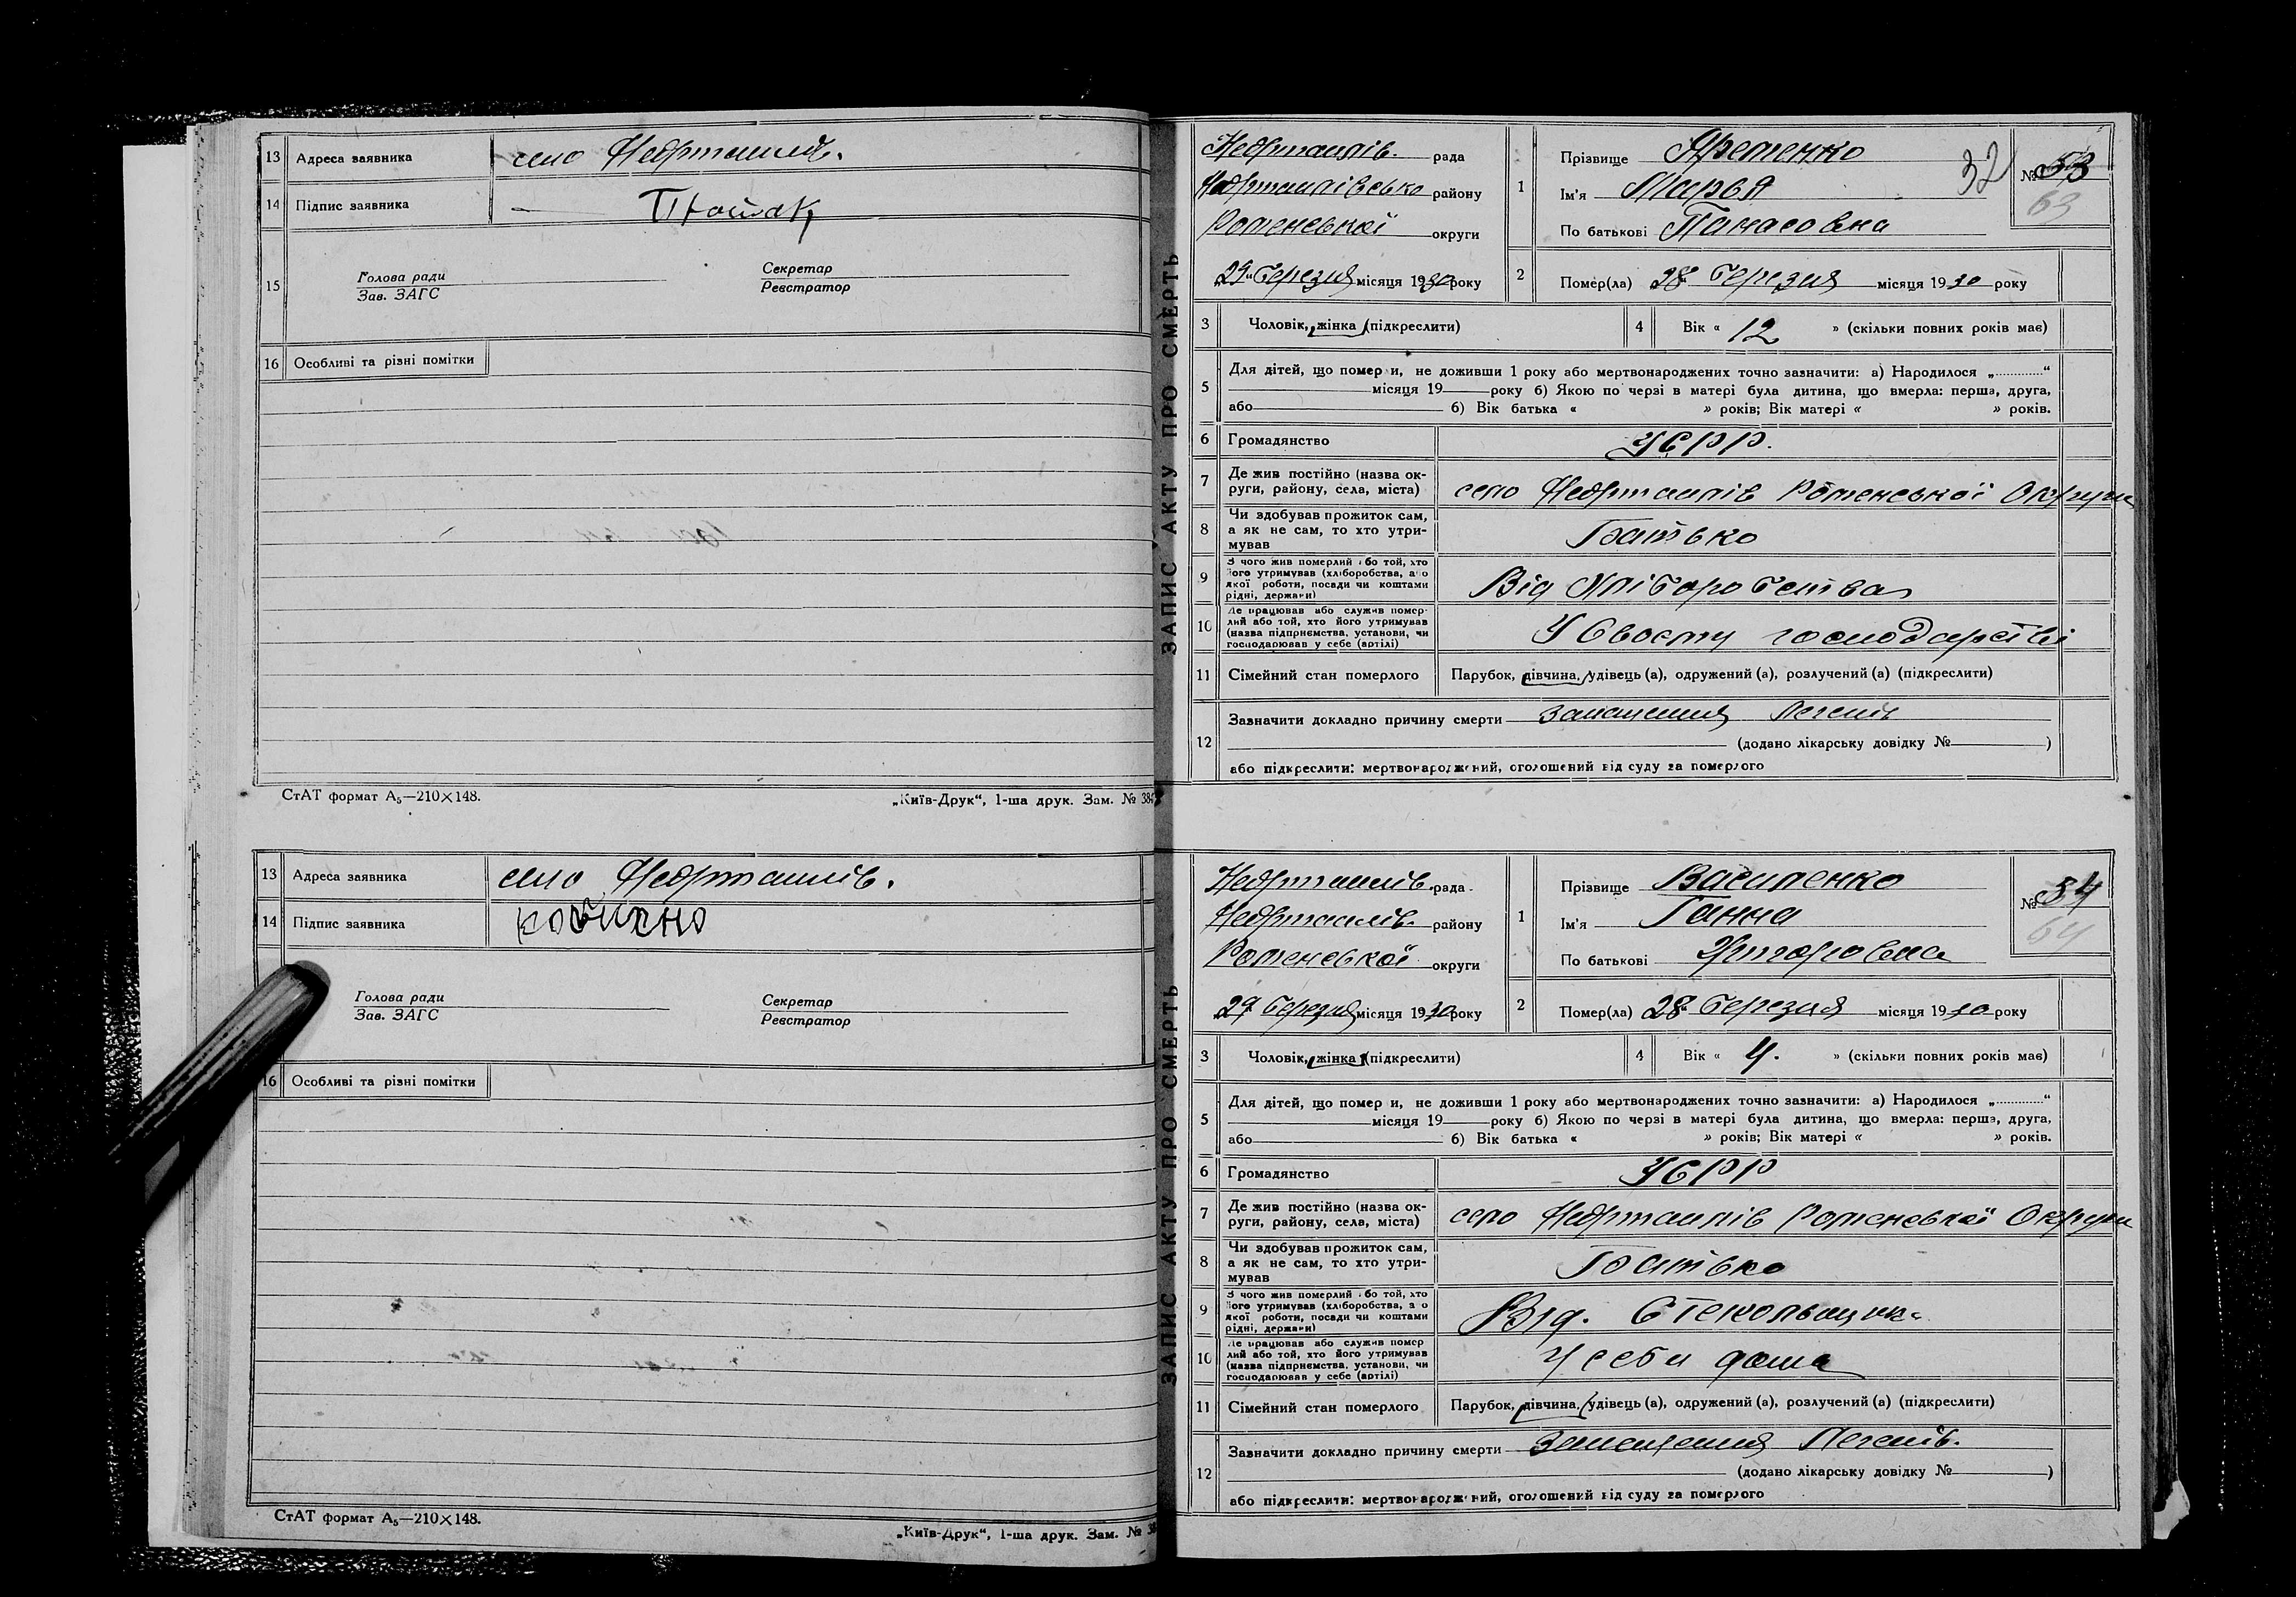 13 Адреса заявника село Недригайлів.
14 Підпис заявника
15 Голова ради
Зав. ЗАГС
Секретар
Реєстратор
16 Особливі та різні помітки
СтАТ формат А₅—210×148.
„Київ-Друк“, 1-ша друк. Зам. №
13 Адреса заявника село Недригайлів.
14 Підпис заявника
Голова ради
Зав. ЗАГС
Секретар
Реєстратор
16 Особливі та різні помітки
СтАТ формат А₅—210×148.
„Київ-Друк“, 1-ша друк. Зам. №
ЗАПИС АКТУ ПРО СМЕРТЬ
Недригайлів. рада
Недригайлівсько району
Роменської округи
29 Березня місяця 1930 року
32
№ 53
63
1 Прізвище Яременко
Ім'я Марья
По батькові Панасовна
2 Помер(ла) 28 Березня місяця 1930 року
3 Чоловік, жінка (підкреслити)
4 Вік « 12 » (скільки повних років має)
5 Для дітей, що померли, не доживши 1 року або мертвонароджених точно зазначити: а) Народилося „............“
місяця 19 року б) Якою по черзі в матері була дитина, що вмерла: перша, друга,
або б) Вік батька « » років; Вік матері « » років.
6 Громадянство УСРР.
7 Де жив постійно (назва округи, району, села, міста) село Недригайлів Роменської Округи
8 Чи здобував прожиток сам,
а як не сам, то хто утримував Батько
9 З чого жив померлий або той, хто
його утримував (хліборобства, або
якої роботи, посади чи коштами
рідні, держави) Від Хліборобства
10 Де працював або служив померлий або той, хто його утримував
(назва підприємства, установи, чи
господарював у себе (артілі) У Своєму господарстві
11 Сімейний стан померлого Парубок, дівчина, удівець (а), одружений (а), розлучений (а) (підкреслити)
12 Зазначити докладно причину смерти Запалення Легенів
(додано лікарську довідку № )
або підкреслити: мертвонароджений, оголошений від суду за померлого
ЗАПИС АКТУ ПРО СМЕРТЬ
Недригайлів. рада
Недригайлів. району
Роменської округи
29 Березня місяця 1930 року
№ 54
64
1 Прізвище Василенко
Ім'я Ганна
По батькові Григоровна
2 Помер(ла) 28 Березня місяця 1930 року
3 Чоловік, жінка (підкреслити)
4 Вік « 4. » (скільки повних років має)
5 Для дітей, що померли, не доживши 1 року або мертвонароджених точно зазначити: а) Народилося „............“
місяця 19 року б) Якою по черзі в матері була дитина, що вмерла: перша, друга,
або б) Вік батька « » років; Вік матері « » років.
6 Громадянство УСРР
7 Де жив постійно (назва округи, району, села, міста) село Недригайлів Роменської Округи
8 Чи здобував прожиток сам,
а як не сам, то хто утримував Батько
9 З чого жив померлий або той, хто
його утримував (хліборобства, або
якої роботи, посади чи коштами
рідні, держави) Від.
10 Де працював або служив померлий або той, хто його утримував
(назва підприємства, установи, чи
господарював у себе (артілі) У себе дома
11 Сімейний стан померлого Парубок, дівчина, удівець (а), одружений (а), розлучений (а) (підкреслити)
12 Зазначити докладно причину смерти Запалення Легенів.
(додано лікарську довідку № )
або підкреслити: мертвонароджений, оголошений від суду за померлого